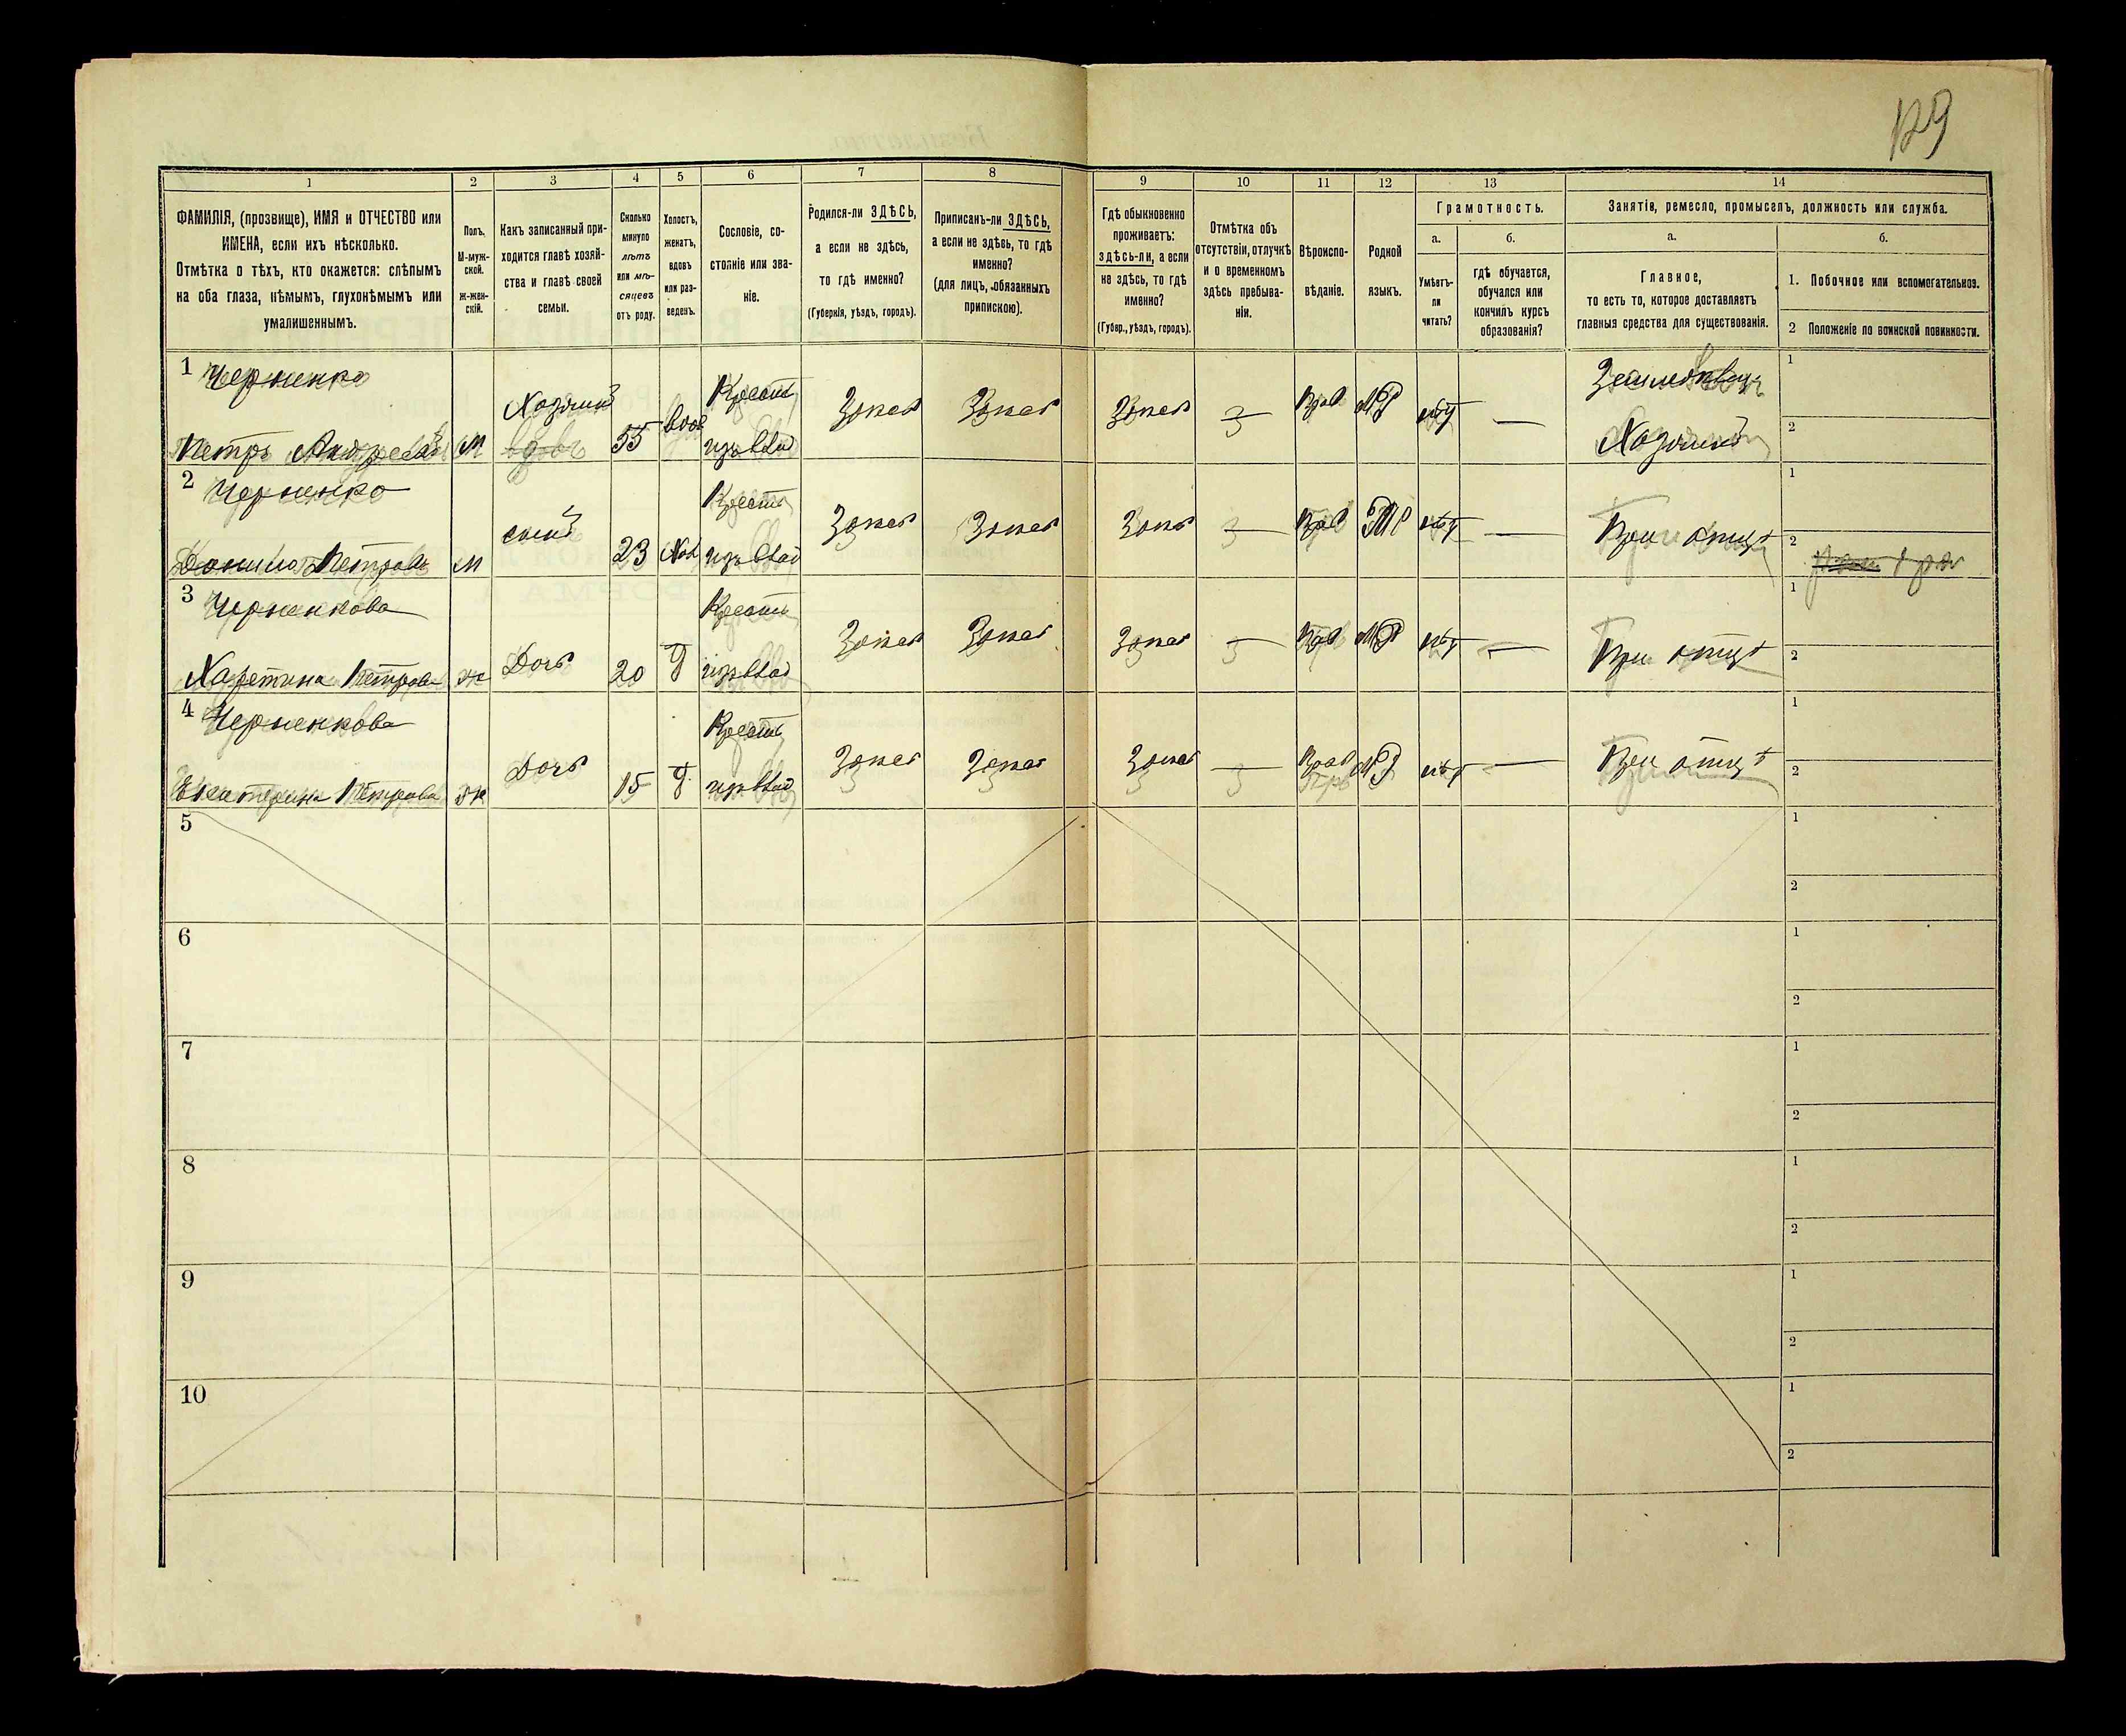 129
1 2 3 4 5 6 7 8 9 10 11 12 13 14
ФАМИЛІЯ, (прозвище), ИМЯ и ОТЧЕСТВО или
ИМЕНА, если ихъ нѣсколько.
Отмѣтка о тѣхъ, кто окажется: слѣпымъ
на оба глаза, нѣмымъ, глухонѣмымъ или
умалишеннымъ.
Полъ.
М-муж-
ской.
Ж-жен-
скій.
Какъ записанный при-
ходится главѣ хозяй-
ства и главѣ своей
семьи.
Сколько
минуло
лѣтъ
или мѣ-
сяцевъ
отъ роду.
Холостъ,
женатъ,
вдовъ
или раз-
веденъ.
Сословіе, со-
стояніе или зва-
ніе.
Родился-ли ЗДѢСЬ,
а если не здѣсь,
то гдѣ именно?
(Губернія, уѣздъ, городъ).
Приписанъ-ли ЗДѢСЬ,
а если не здѣсь, то гдѣ
именно?
(для лицъ, обязанныхъ
припискою).
Гдѣ обыкновенно
проживаетъ:
здѣсь-ли, а если
не здѣсь, то гдѣ
именно?
(Губер., уѣздъ, городъ).
Отмѣтка объ
отсутствіи, отлучкѣ
и о временномъ
здѣсь пребыва-
ніи.
Вѣроиспо-
вѣданіе.
Родной
языкъ.
Грамотность.
а.
Умѣетъ-
ли
читать?
б.
гдѣ обучается,
обучался или
кончилъ курсъ
образованія?
Занятіе, ремесло, промыселъ, должность или служба.
а.
Главное,
то есть то, которое доставляетъ
главныя средства для существованія.
б.
1. Побочное или вспомогательное.
2 Положеніе по воинской повинности.
1 Черненко Хозяинъ Крест Земледѣлецъ 1
Петръ Андреевъ М вдовъ 55 вдов изъ влад Здесь Здесь Здесь З — Прав МР нѣт — Хозяинъ 2
2 Черненко Крест 1
Данило Петровъ М сынъ 23 Хол изъ влад Здесь Здесь Здесь З — Прав МР нѣт — При отцѣ 2
3 Черненкова Крест 1
Харетина Петрова Ж Дочь 20 Д изъ влад Здесь Здесь Здесь З — Прав МР нѣт — При отцѣ 2
4 Черненкова Крест 1
Екатерина Петрова Ж Дочь 15 Д изъ влад Здесь Здесь Здесь З — Прав МР нѣт — При отцѣ 2
5 1
2
6 1
2
7 1
2
8 1
2
9 1
2
10 1
2